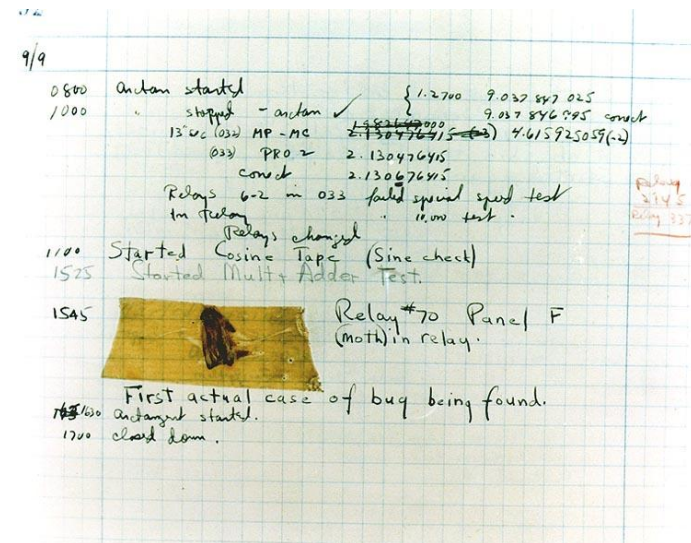 9/9
0800 arctan started { 1.2700 9.037 847 025
1000 " stopped - arctan ✓ 9.037 846 995 correct
13" uc (032) MP - MC 2.130476415 (-3) 4.615925059(-2)
(033) PRO 2 2.130476415
correct 2.130676415
Relays 6-2 in 033 failed special speed test
In Relay " 10,000 test .
Relay
2145
Relay 337
Relays changed
1100 Started Cosine Tape (Sine check)
1525 Started Mult + Adder Test.
1545 Relay #70 Panel F
(moth) in relay.
First actual case of bug being found.
1630 arctangent started.
1700 closed down .